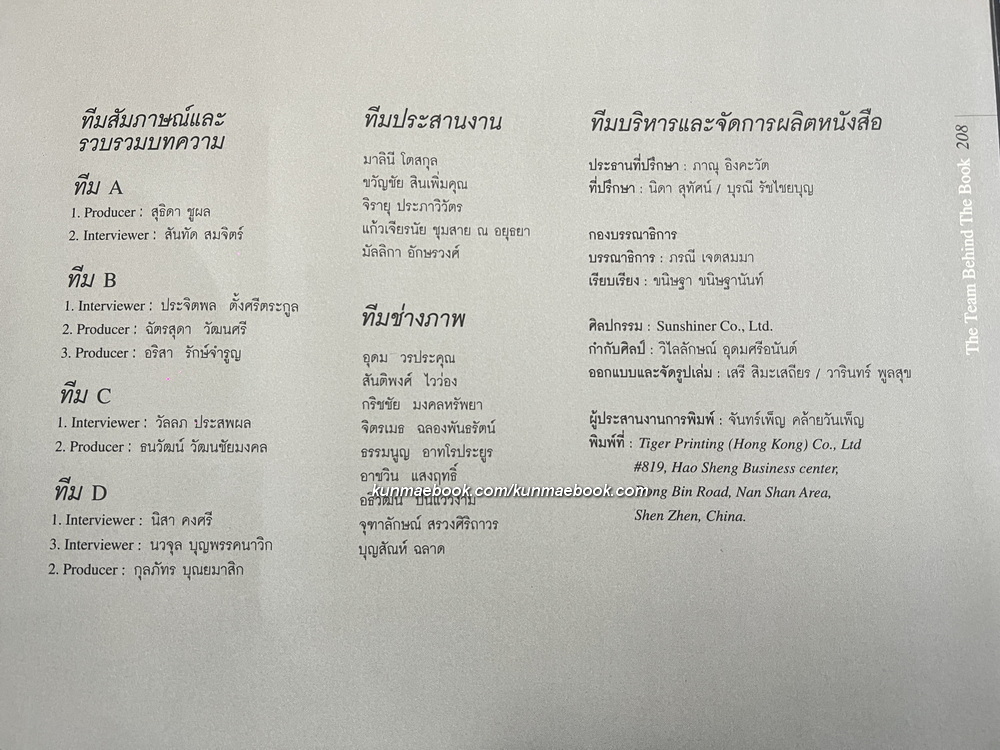 ทีมสัมภาษณ์และ
รวบรวมบทความ
ทีม A
1. Producer : สุธิดา ชูผล
2. Interviewer : สันทัด สมจิตร์
ทีม B
1. Interviewer : ประจิตพล ตั้งศรีตระกูล
2. Producer : ฉัตรสุดา วัฒนศรี
3. Producer : อริสา รักษ์จำรูญ
ทีม C
1. Interviewer : วัลลภ ประสพผล
2. Producer : ธนวัฒน์ วัฒนชัยมงคล
ทีม D
1. Interviewer : นิสา คงศรี
3. Interviewer : นวจุล บุญพรรคนาวิก
2. Producer : กุลภัทร บุณยมาสิก
ทีมประสานงาน
มาลินี โตสกุล
ขวัญชัย สินเพิ่มคุณ
จิรายุ ประภาวิวัตร
แก้วเจียรนัย ชุมสาย ณ อยุธยา
มัลลิกา อักษรวงศ์
ทีมช่างภาพ
อุดม วรประคุณ
สันติพงศ์ ไวว่อง
กริชชัย มงคลหรัพยา
จิตรเมธ ฉลองพันธรัตน์
ธรรมนูญ อาทโรประยูร
อาชวิน แสงฤทธิ์
อธิวัฒน์ ปิ่นแววงาม
จุฑาลักษณ์ สรวงศิริถาวร
บุญสัณห์ ฉลาด
ทีมบริหารและจัดการผลิตหนังสือ
ประธานที่ปรึกษา : ภาณุ อิงคะวัต
ที่ปรึกษา : นิดา สุทัศน์ / บุรณี รัชไชยบุญ
กองบรรณาธิการ
บรรณาธิการ : ภรณี เจตสมมา
เรียบเรียง : ขนิษฐา ขนิษฐานันท์
ศิลปกรรม : Sunshiner Co., Ltd.
กำกับศิลป์ : วิไลลักษณ์ อุดมศรีอนันต์
ออกแบบและจัดรูปเล่ม : เสรี สิมะเสถียร / วารินทร์ พูลสุข
ผู้ประสานงานการพิมพ์ : จันทร์เพ็ญ คล้ายวันเพ็ญ
พิมพ์ที่ : Tiger Printing (Hong Kong) Co., Ltd
#819, Hao Sheng Business center,
Bin Road, Nan Shan Area,
Shen Zhen, China.
The Team Behind The Book 208
kunmaebook.com/kunmaebook.com